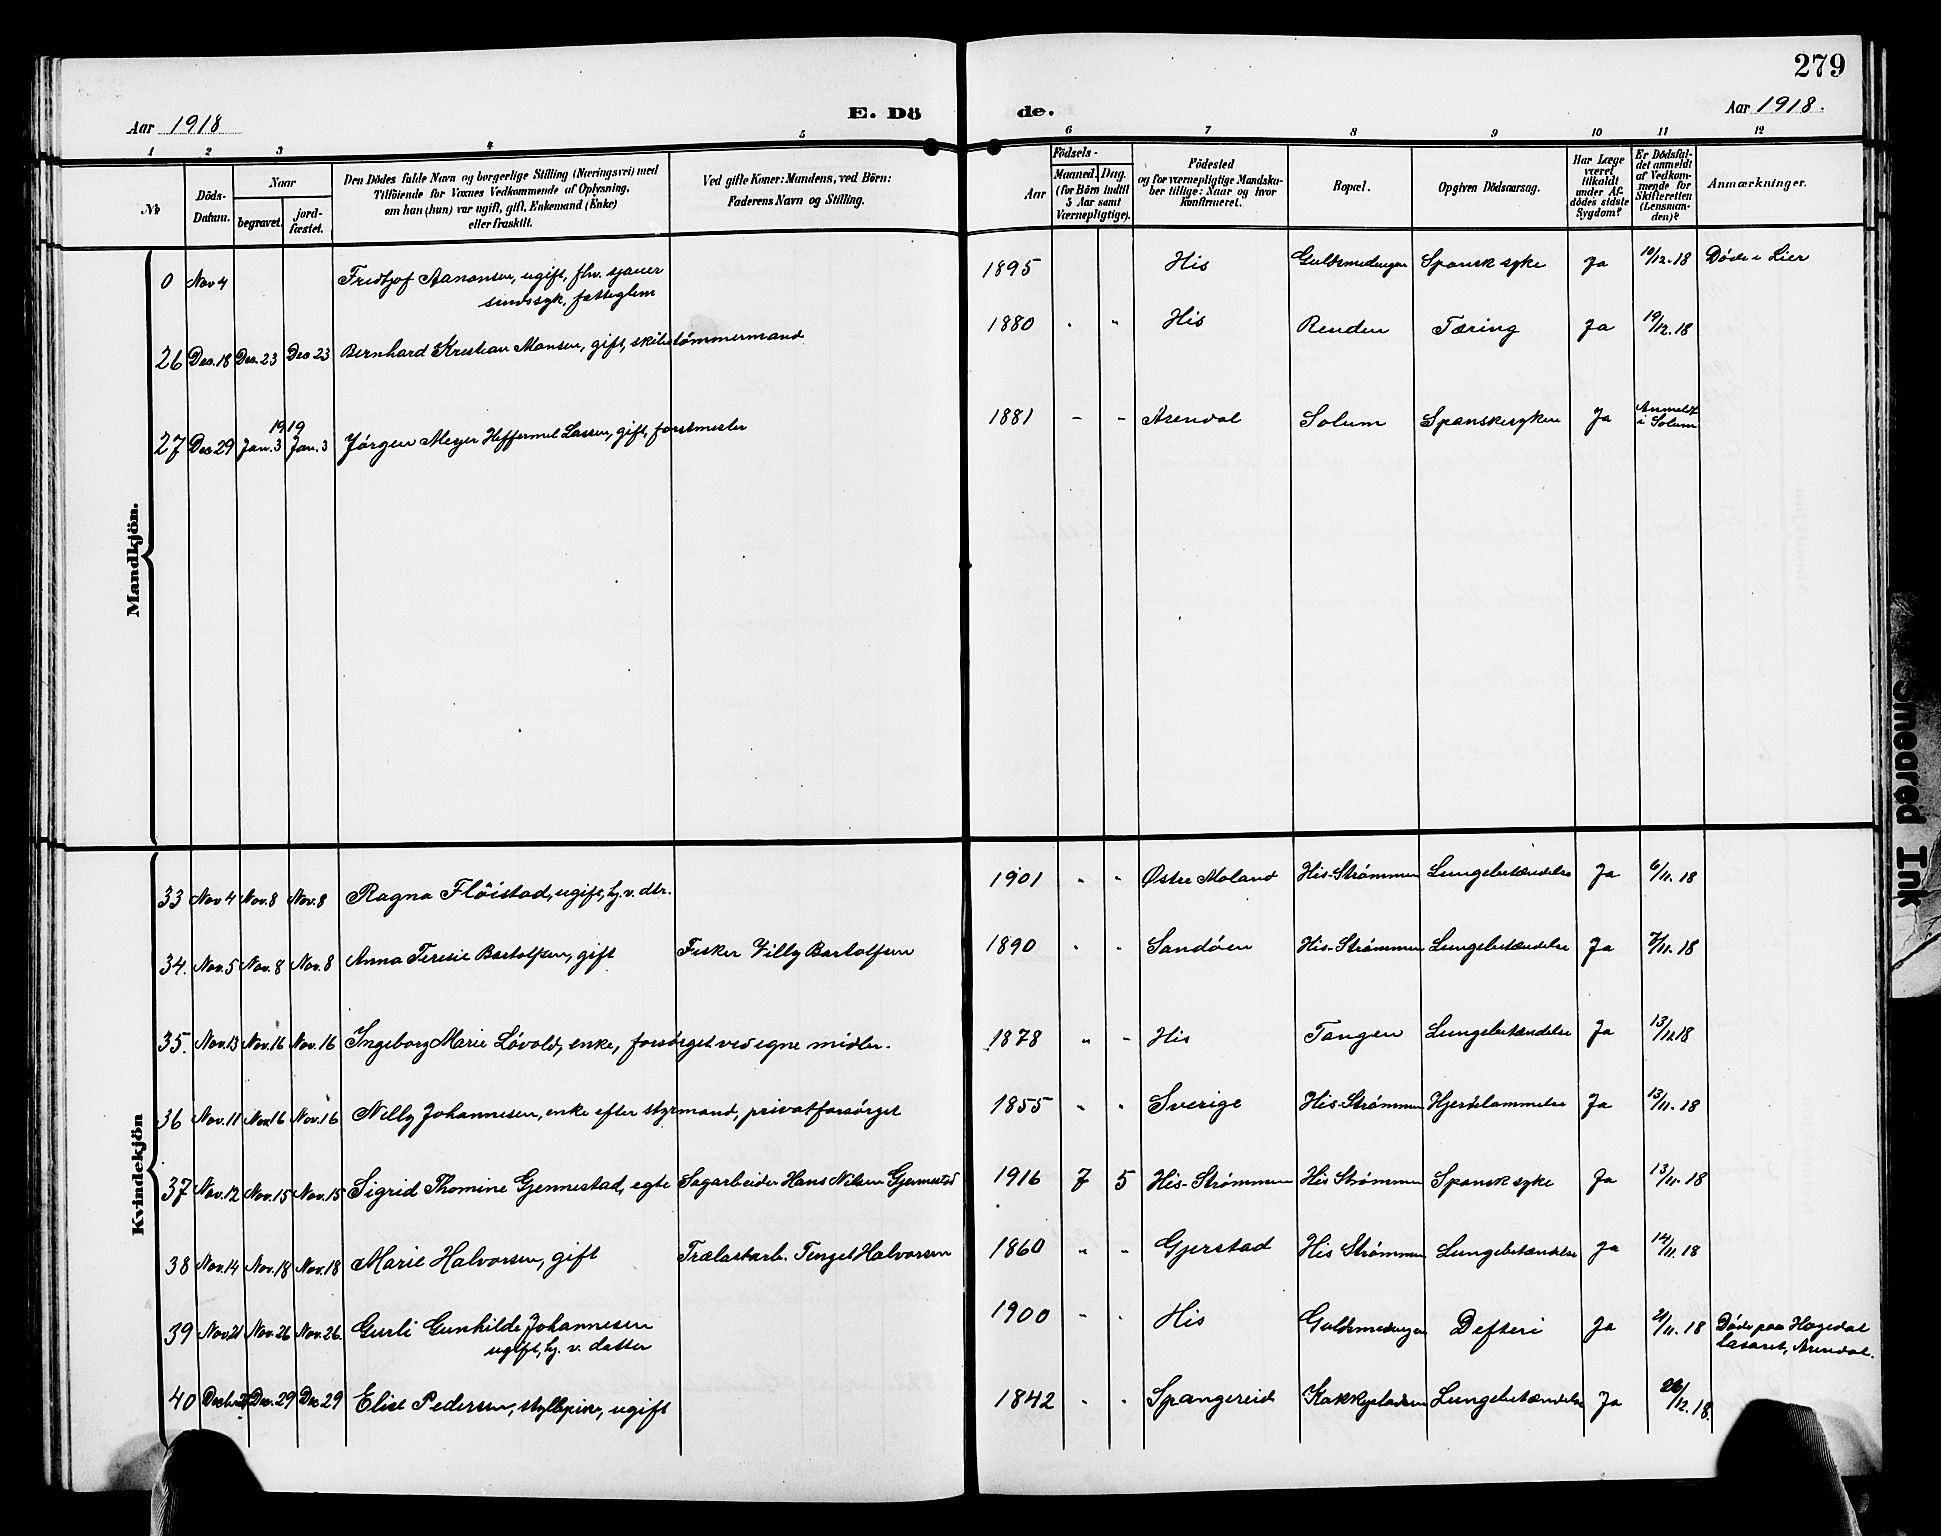 279
Aar 1918
E. Dö
de.
Aar 1918.
1 2 3 4 5 6 7 8 9 10 11 12
№
Döds-
Datum.
Naar
begravet.
jord-
fæstet.
Den Dödes fulde Navn og borgerlige Stilling (Næringsvei) med
Tilföiende for Voxnes Vedkommende af Oplysning,
om han (hun) var ugift, gift, Enkemand (Enke)
eller fraskilt.
Ved gifte Koner: Mandens, ved Börn:
Faderens Navn og Stilling.
Födsels-
Aar
Maaned. Dag.
(for Börn indtil
5 Aar samt
Værnepligtige).
Födested
og for værnepligtige Mandska-
ber tillige: Naar og hvor
konfirmeret.
Bopæl.
Opgiven Dödsaarsag.
Har Læge
været
tilkaldt
under Af-
dödes sidste
Sygdom?
Er Dödsfal-
det anmeldt
af Vedkom-
mende for
Skifteretten
(Lensman-
den)?
Anmærkninger.
Mandkjön.
0 Nov 4 Fredtjof Aanonsen, ugift, fhv. sjauer 1895 His Guldsmedengen Spansk syke Ja 10/12-18 Døde i Lier
sindssyk, fatteglem
26 Dec. 18 Dec. 23 Dec 23 Bernhard Kristian Monsen, gift, skibstømmermand 1880 " " His Renden Tæring Ja 19/12.18
1919
27 Dec 29 Jan. 3 Jan. 3 Jørgen Meyer Heffermel Lassen, gift, forstmester 1881 - - Arendal Solum Spanskesyken Ja Anmeldt
i Solum
Kvindekjön
33 Nov 4 Nov. 8 Nov. 8 Ragna Flöistad, ugift, hj. v. dtr. 1901 " " Østre Moland His-Strømmen Lungebetændelse Ja 6/11.18
34. Nov. 5 Nov. 8 Nov. 8 Anna Teresie Bartolfsen, gift Fisker Villy Bartolfsen 1890 " " Sandøen His-Strømmen Lungebetændelse Ja 7/11.18
35. Nov. 13 Nov. 16 Nov. 16 Ingeborg Marie Løvold, enke, forsørget ved egne midler. 1878 " " His Tangen Lungebetændelse Ja 13/12 18
36 Nov. 11 Nov. 16 Nov. 16 Nelly Johannesen, enke efter styrmand, privatforsørget 1855 " " Sverige His-Strømmen Hjertelammelse Ja 13/11.18
37 Nov. 12 Nov. 15 Nov. 15 Sigrid Thomine Gjennestad, egte Sagarbeider Hans Nilsen Gjennestad 1916 7 5 His-Strømmen His Strømmen Spansk syke Ja 13/11.18
38 Nov. 14 Nov. 18 Nov. 18 Marie Halvorsen, gift Trælastarb. Tengel Halvorsen 1860 " " Gjerstad His Strømmen Lungebetændelse Ja 14/11.18
39 Nov. 21 Nov. 26 Nov. 26. Gurli Gunhilde Johannesen 1900 " " His Guldsmedengen Defteri Ja 21/11.18 Døde paa Hægedal
ugift, hj. v. datter lasaret, Arendal.
40 Dec. 29 Dec 29 Elise Pedersen, syllepike, ugift 1842 " " Spangereid Kokkepladsen Lungebetændelse Ja 26/12.18.
Smeared Ink